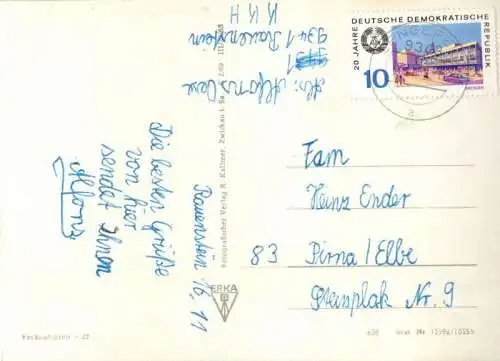 Abs: Alfons
9341 Rauenstein
K K H
20 JAHRE DEUTSCHE DEMOKRATISCHE REPUBLIK
10
DRESDEN
Rauenstein 16. 11
Die besten Grüße
von hier
sendet Ihnen
Alfons
Fotografischer Verlag R. Kallmer, Zwickau i. Sa.
ERKA
Fam
Heinz Ender
83 Pirna / Elbe
Steinplak Nr. 9